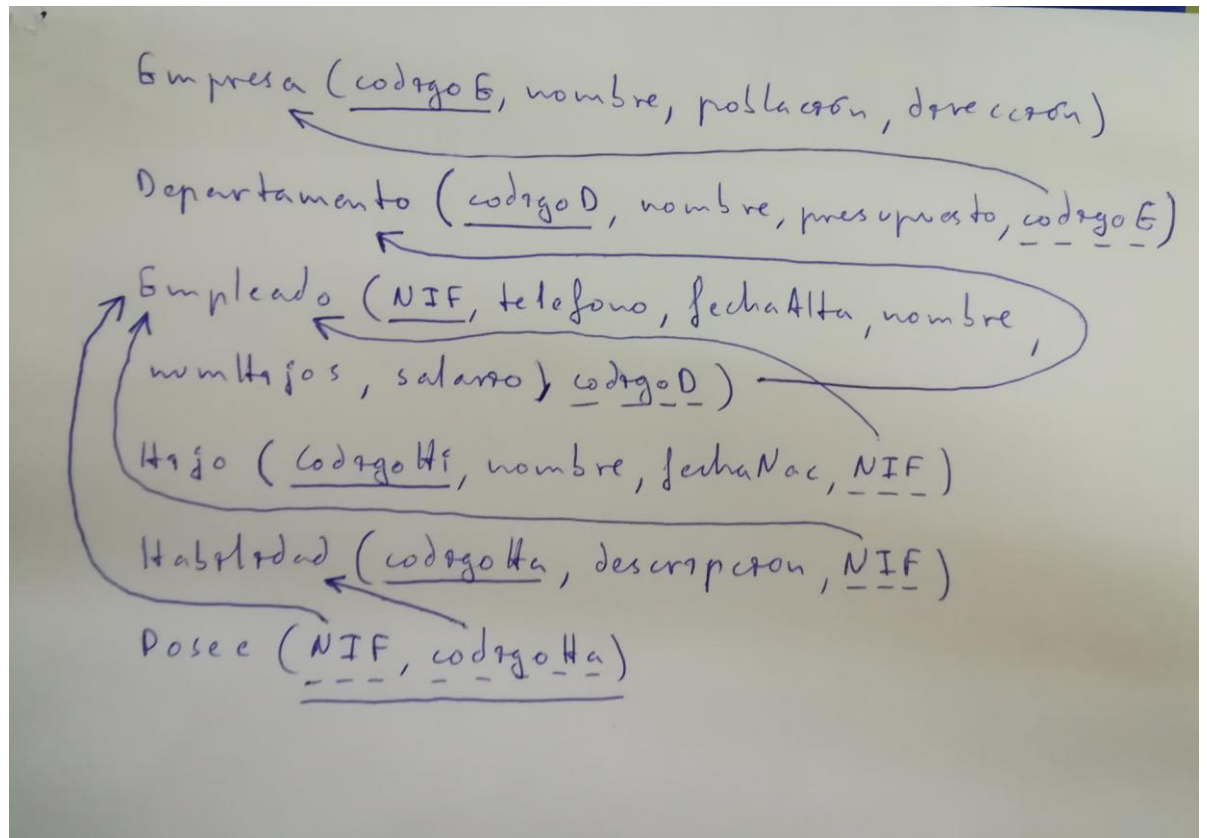 Empresa (codigoE, nombre, población, dirección)
Departamento (codigoD, nombre, presupuesto, codigoE)
Empleado (NIF, telefono, fechaAlta, nombre,
numHijos, salario, codigoD)
Hijo (CodigoHi, nombre, fechaNac, NIF)
Habilidad (codigoHa, descripcion, NIF)
Posee (NIF, codigoHa)